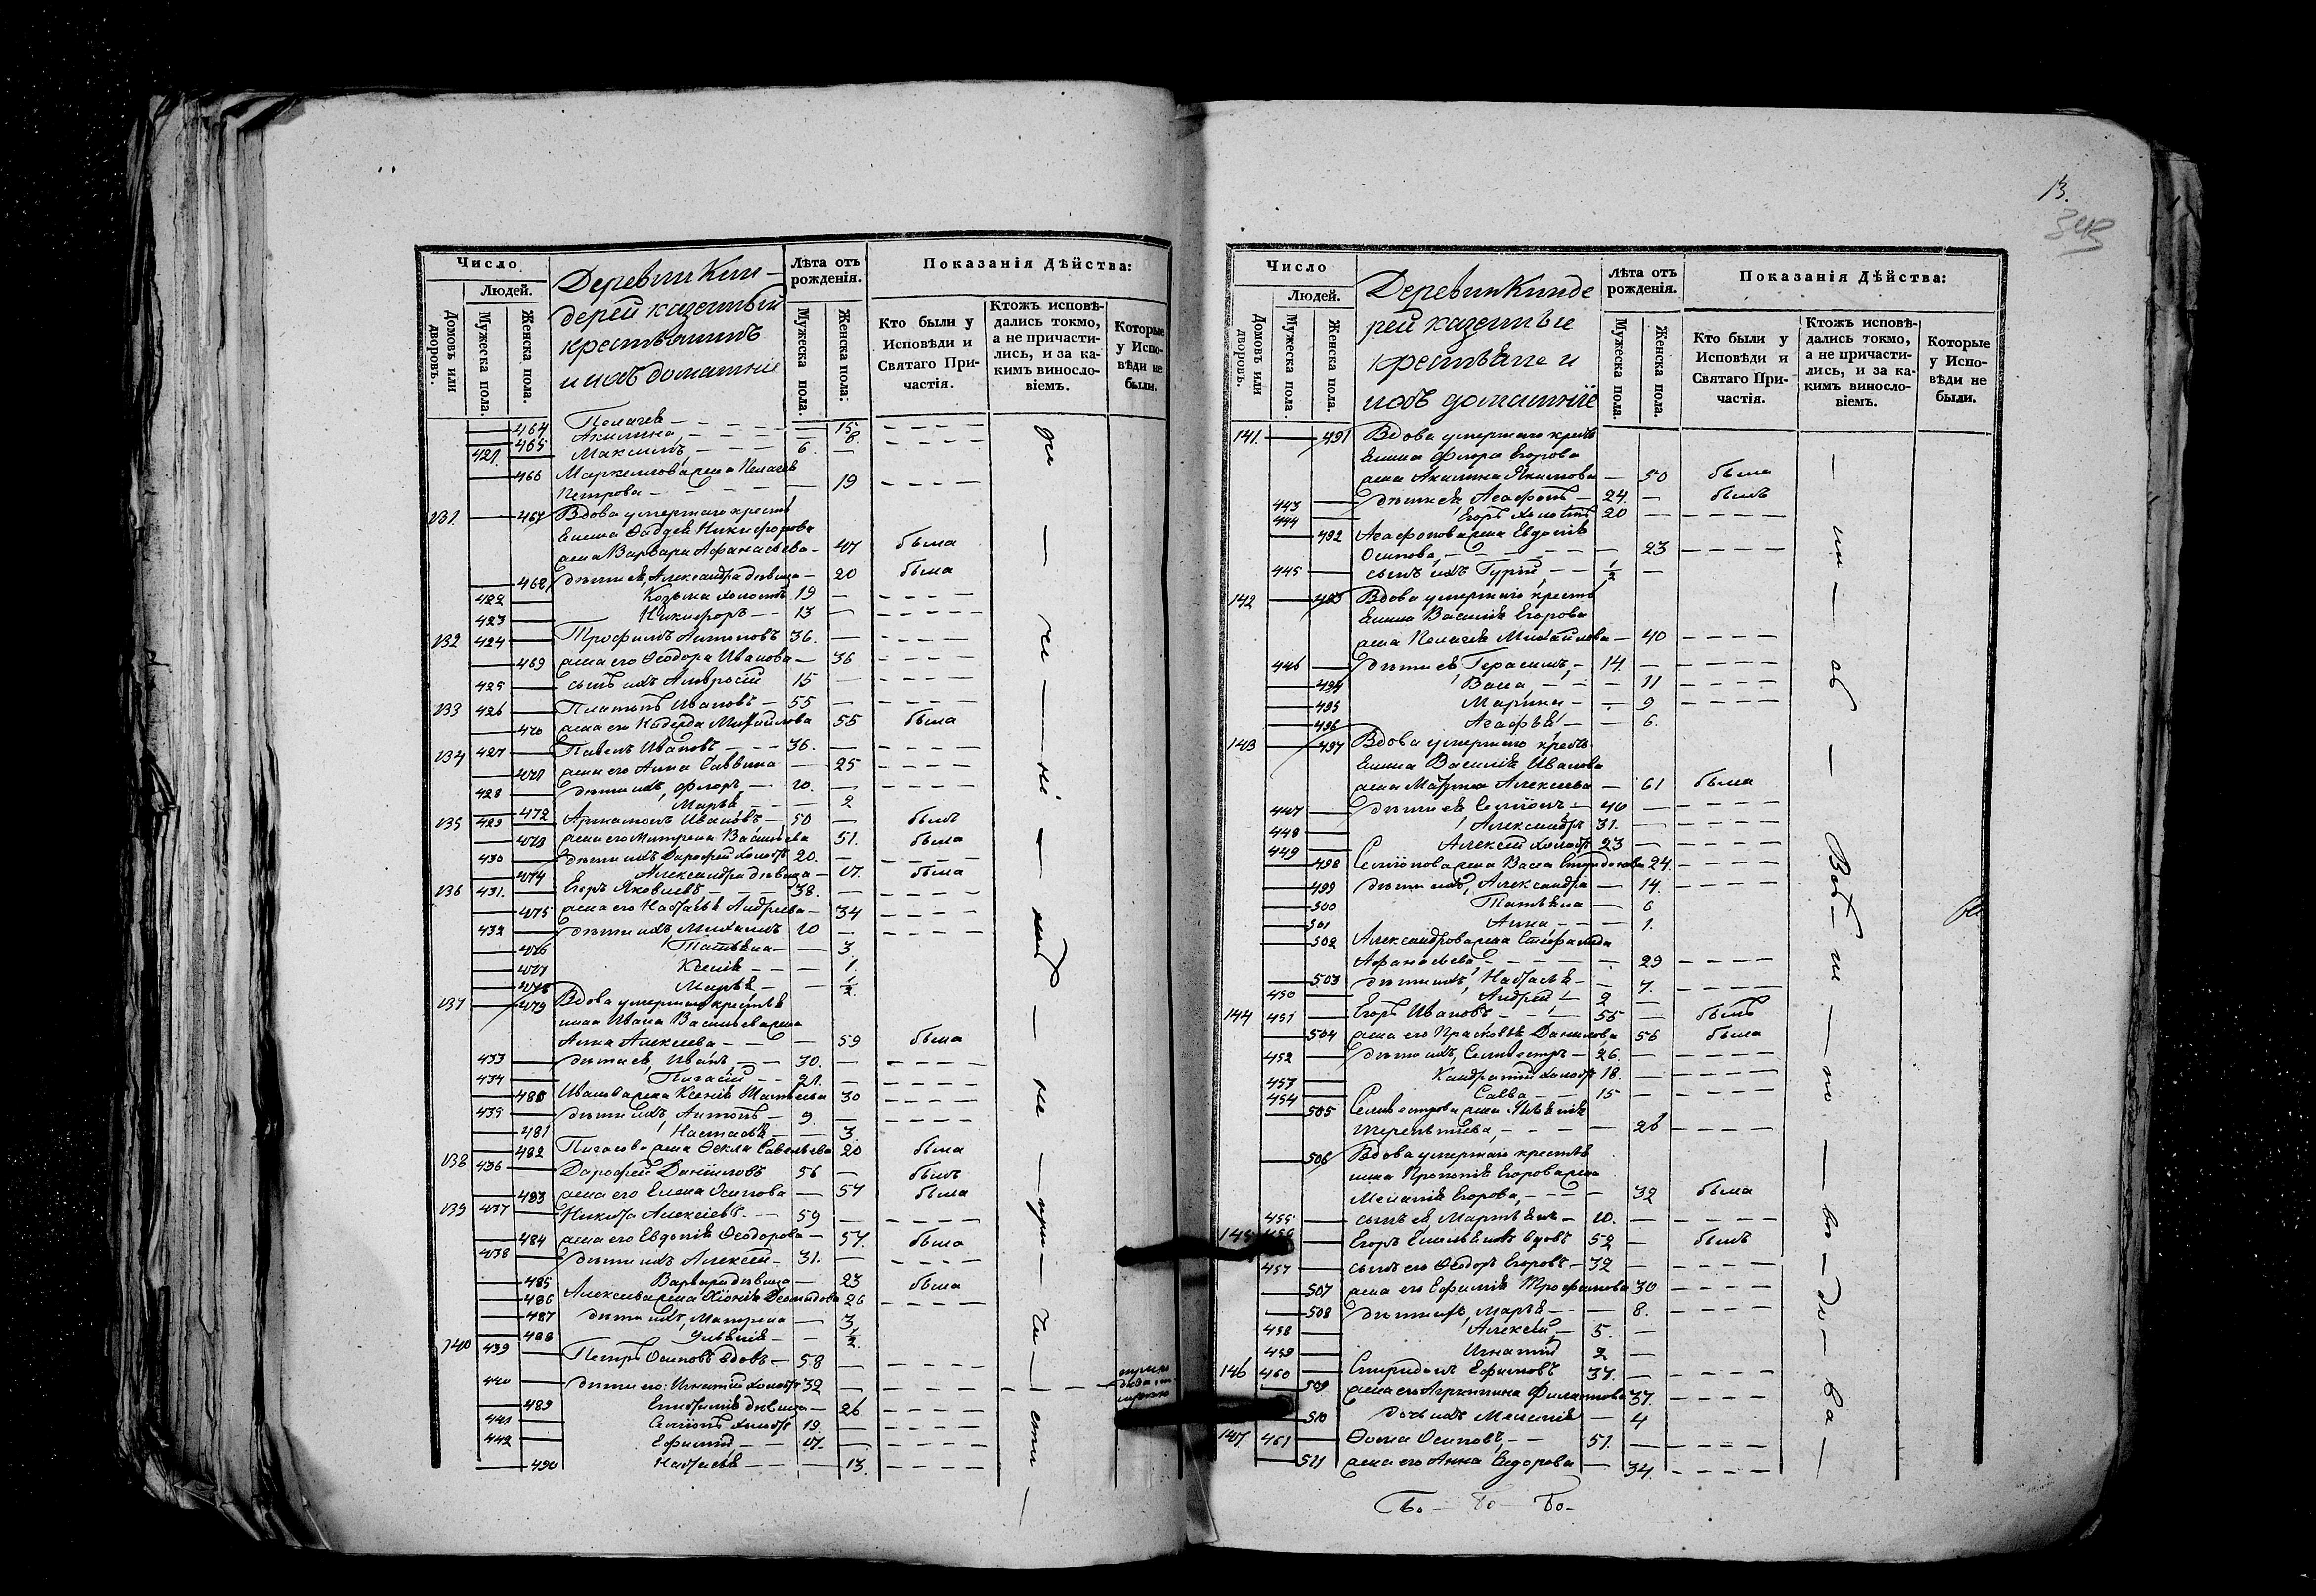 13.
Число
Людей.
Домовъ или дворовъ.
Мужеска пола.
Женска пола.
Деревни Кин-
дерей казенный
крестьянинъ
и ихъ домашніе
Лѣта отъ рожденія.
Мужеска пола.
Женска пола:
Показанія Дѣйства:
Кто были у Исповѣди и Святаго При-частія.
Ктожъ исповѣ-дались токмо, а не причасти-лись, и за ка-кимъ винослo-віемъ.
Которые у Испо-вѣди не были.
464 Пелагея 15
465 Акилина 8.
421. Максимъ, 6.
466 Маркеллова жена Пелагея
Петрова 19
131. 467 Вдова умершаго кресть
янина Фаддея Никифорова
жена Варвара Афанасьева 47 была
468 дѣти ея, Александра дѣвица 20 была
422 Козьма холостъ 19
423 Никифоръ 13
132 424 Трофимъ Антоновъ 36.
469 жена его Феодора Иванова 36
425 сынъ ихъ Амвросій 15
133 426 Платонъ Ивановъ 55
470 жена его Надежда Михайлова 55 была
134 427 Павелъ Ивановъ 36.
471 жена его Анна Саввина 25
428 дѣти ихъ, Флоръ 10.
472 Марья 2
135 429 Артамонъ Ивановъ 50 былъ
473 жена его Матрена Васильева 51. была
430 дѣти ихъ Дарофей холостъ 20.
474 Александра дѣвица 17. была
136 431. Егоръ Яковлевъ 38.
475 жена его Настасья Андреева 34
432 дѣти ихъ, Михаилъ 10
476 Татьяна 3.
477 Ксенія 1.
478 Марья 1/2.
137 479 Вдова умершаго крестья
нина Ивана Васильева жена
Анна Алексеева 59 была
433 дѣти ея, Иванъ 30.
434 Пигасій 21.
480 Иванова жена Ксенія Матвеева 30
435 дѣти ихъ, Антонъ 9.
481 Настасья 3.
482 Пигасова жена Фекла Савельева 20 была
138 436 Дарофей Даниловъ 56 былъ
483 жена его Елена Осипова 57 была
139 437 Никита Алексѣевъ 59
484 жена его Евдокія Феодорова 57. была
438 дѣти ихъ Алексей 31.
485 Варвара дѣвица 23 была
486 Алексеева жена Хіонія Деомидова 26
487 дѣти ихъ, Матрена 3
488 Ульянія 1/2.
140 439 Петръ Осиповъ вдовъ 58
440 дѣти его: Игнатій холостъ 32
489 Епистимія дѣвица 26
441 Семіонъ холостъ 19.
442 Ефимій, 17.
490 Настасья 13.
Число
Людей.
Домовъ или дворовъ.
Мужеска пола.
Женска пола.
Деревни Кинде
рей казенные
крестьяне и
ихъ домашніе
Лѣта отъ рожденія.
Мужеска пола.
Женска пола.
Показанія Дѣйства:
Кто были у Исповѣди и Святаго При-частія.
Ктожъ исповѣ-дались токмо, а не причасти-лись, и за ка-кимъ винослo-віемъ.
Которые у Испо-вѣди не были.
141. 491 Вдова умершаго кресть
янина Флора Егорова
жена Акилина Якимова 50 была
443 дѣти ея, Агафонъ 24. былъ
444 Егоръ холостъ 20
492 Агафонова жена Евдокія
Осипова, 23
445 сынъ ихъ Гурій 1/2
142 493 Вдова умершаго кресть
янина Василія Егорова
жена Пелагея Михайлова 40
446 дѣти ея, Герасимъ, 14.
494 Васса, 11
495 Марина 9
496 Агафья 6.
143 497 Вдова умершаго кресть
янина Василія Иванова
жена Марина Алексеева 61 была
447 дѣти ея Семіонъ 40
448 Александръ 31.
449 Алексей холостъ 23
498 Семіонова жена Васса Спиридонова 24.
499 дѣти ихъ, Александра 14.
500 Татьяна 6
501 Анна 1.
502 Александрова жена Стефанида
Афанасьева 29
503 дѣти ихъ, Настасья 7.
450 Андрей 2
144 451 Егоръ Ивановъ 55 былъ
504 жена его Прасковья Данилова 56 была
452 дѣти ихъ, Селивестръ 26.
453 Кандратій холостъ 18.
454 Савва 15
505 Селивестрова жена Ульянія
Терентьева, 26
506 Вдова умершаго крестья
нина Прокопія Егорова жена
Меланія Егорова, 32 была
455 сынъ ея, Мартьянъ 10.
145 456 Егоръ Емельяновъ вдовъ 52 былъ
457 сынъ его Феодоръ Егоровъ 32
507 жена его Ефимія Трофимова 30
508 дѣти ихъ, Марья 8.
458 Алексей, 5.
459 Игнатій 2
146 460 Спиридонъ Ефимовъ 37.
509 жена его Агрипина Филиппова 37.
510 дочь ихъ Меланія 4
147 461 Фома Осиповъ, 51.
511 жена его Анна Сидорова 34.